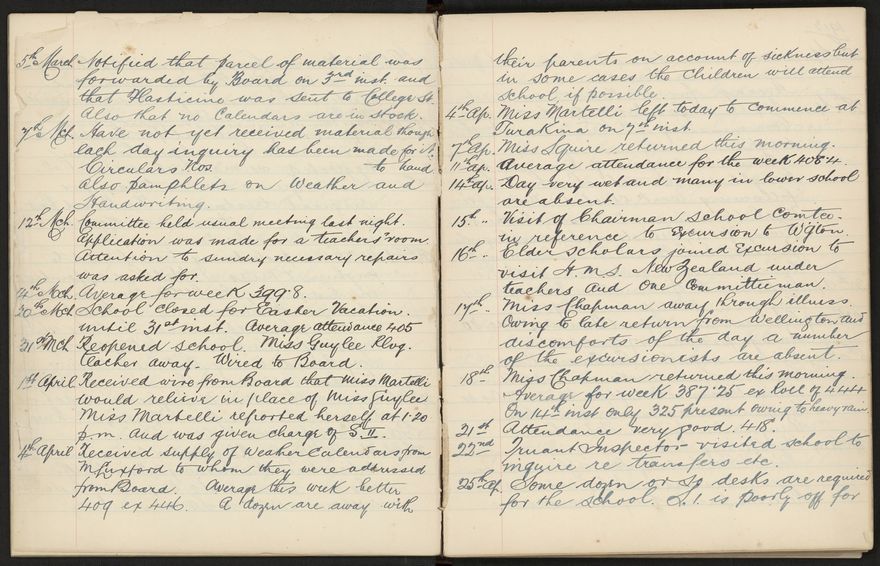 5th March Notified that parcel of material was
forwarded by Board on 3rd inst. and
that Plasticine was sent to College St.
Also that no Calendars are in stock.
7th Mch. Have not yet received material though
each day inquiry has been made for it.
Circulars Nos. to hand
also pamphlets on Weather and
Handwriting.
12th Mch. Committee held usual meeting last night.
Application was made for a teachers' room.
Attention to sundry necessary repairs
was asked for.
Mch. Average for week 399.8.
20th Mch School closed for Easter Vacation.
until 31st inst. Average attendance 405
31st Mch Reopened school. Miss Guylee Relvg.
teacher away. Wired to Board.
1st April Received wire from Board that Miss Martelli
would relieve in place of Miss Guylee
Miss Martelli reported herself at 1.20
p.m. and was given charge of S II.
4th April Received supply of Weather Calendars from
to whom they were addressed
from Board. Average this week better
409 ex 446. A dozen are away with
their parents on account of sickness but
in some cases the children will attend
school if possible.
4th Ap. Miss Martelli left today to commence at
Turakina on 7th inst.
7th Ap. Miss Squire returned this morning.
11th Ap. Average attendance for the week 408.4.
14th Ap. Day very wet and many in lower school
are absent.
15th .. Visit of Chairman School Comtee.
in reference to Excursion to Wgton.
16th .. Elder Scholars joined Excursion to
visit H.M.S. New Zealand under
teachers and one Committeeman.
17th .. Miss Chapman away through illness.
Owing to late return from Wellington and
discomforts of the day a number
of the excursionists are absent.
18th Miss Chapman returned this morning.
Average for week 387.25 ex Roll of 444
On 14th inst only 325 present owing to heavy rain.
21st Attendance very good. 418.
22nd Truant Inspector visited school to
inquire re transfers etc.
25th Ap. Some dozen or so desks are required
for the school. S.1. is poorly off for